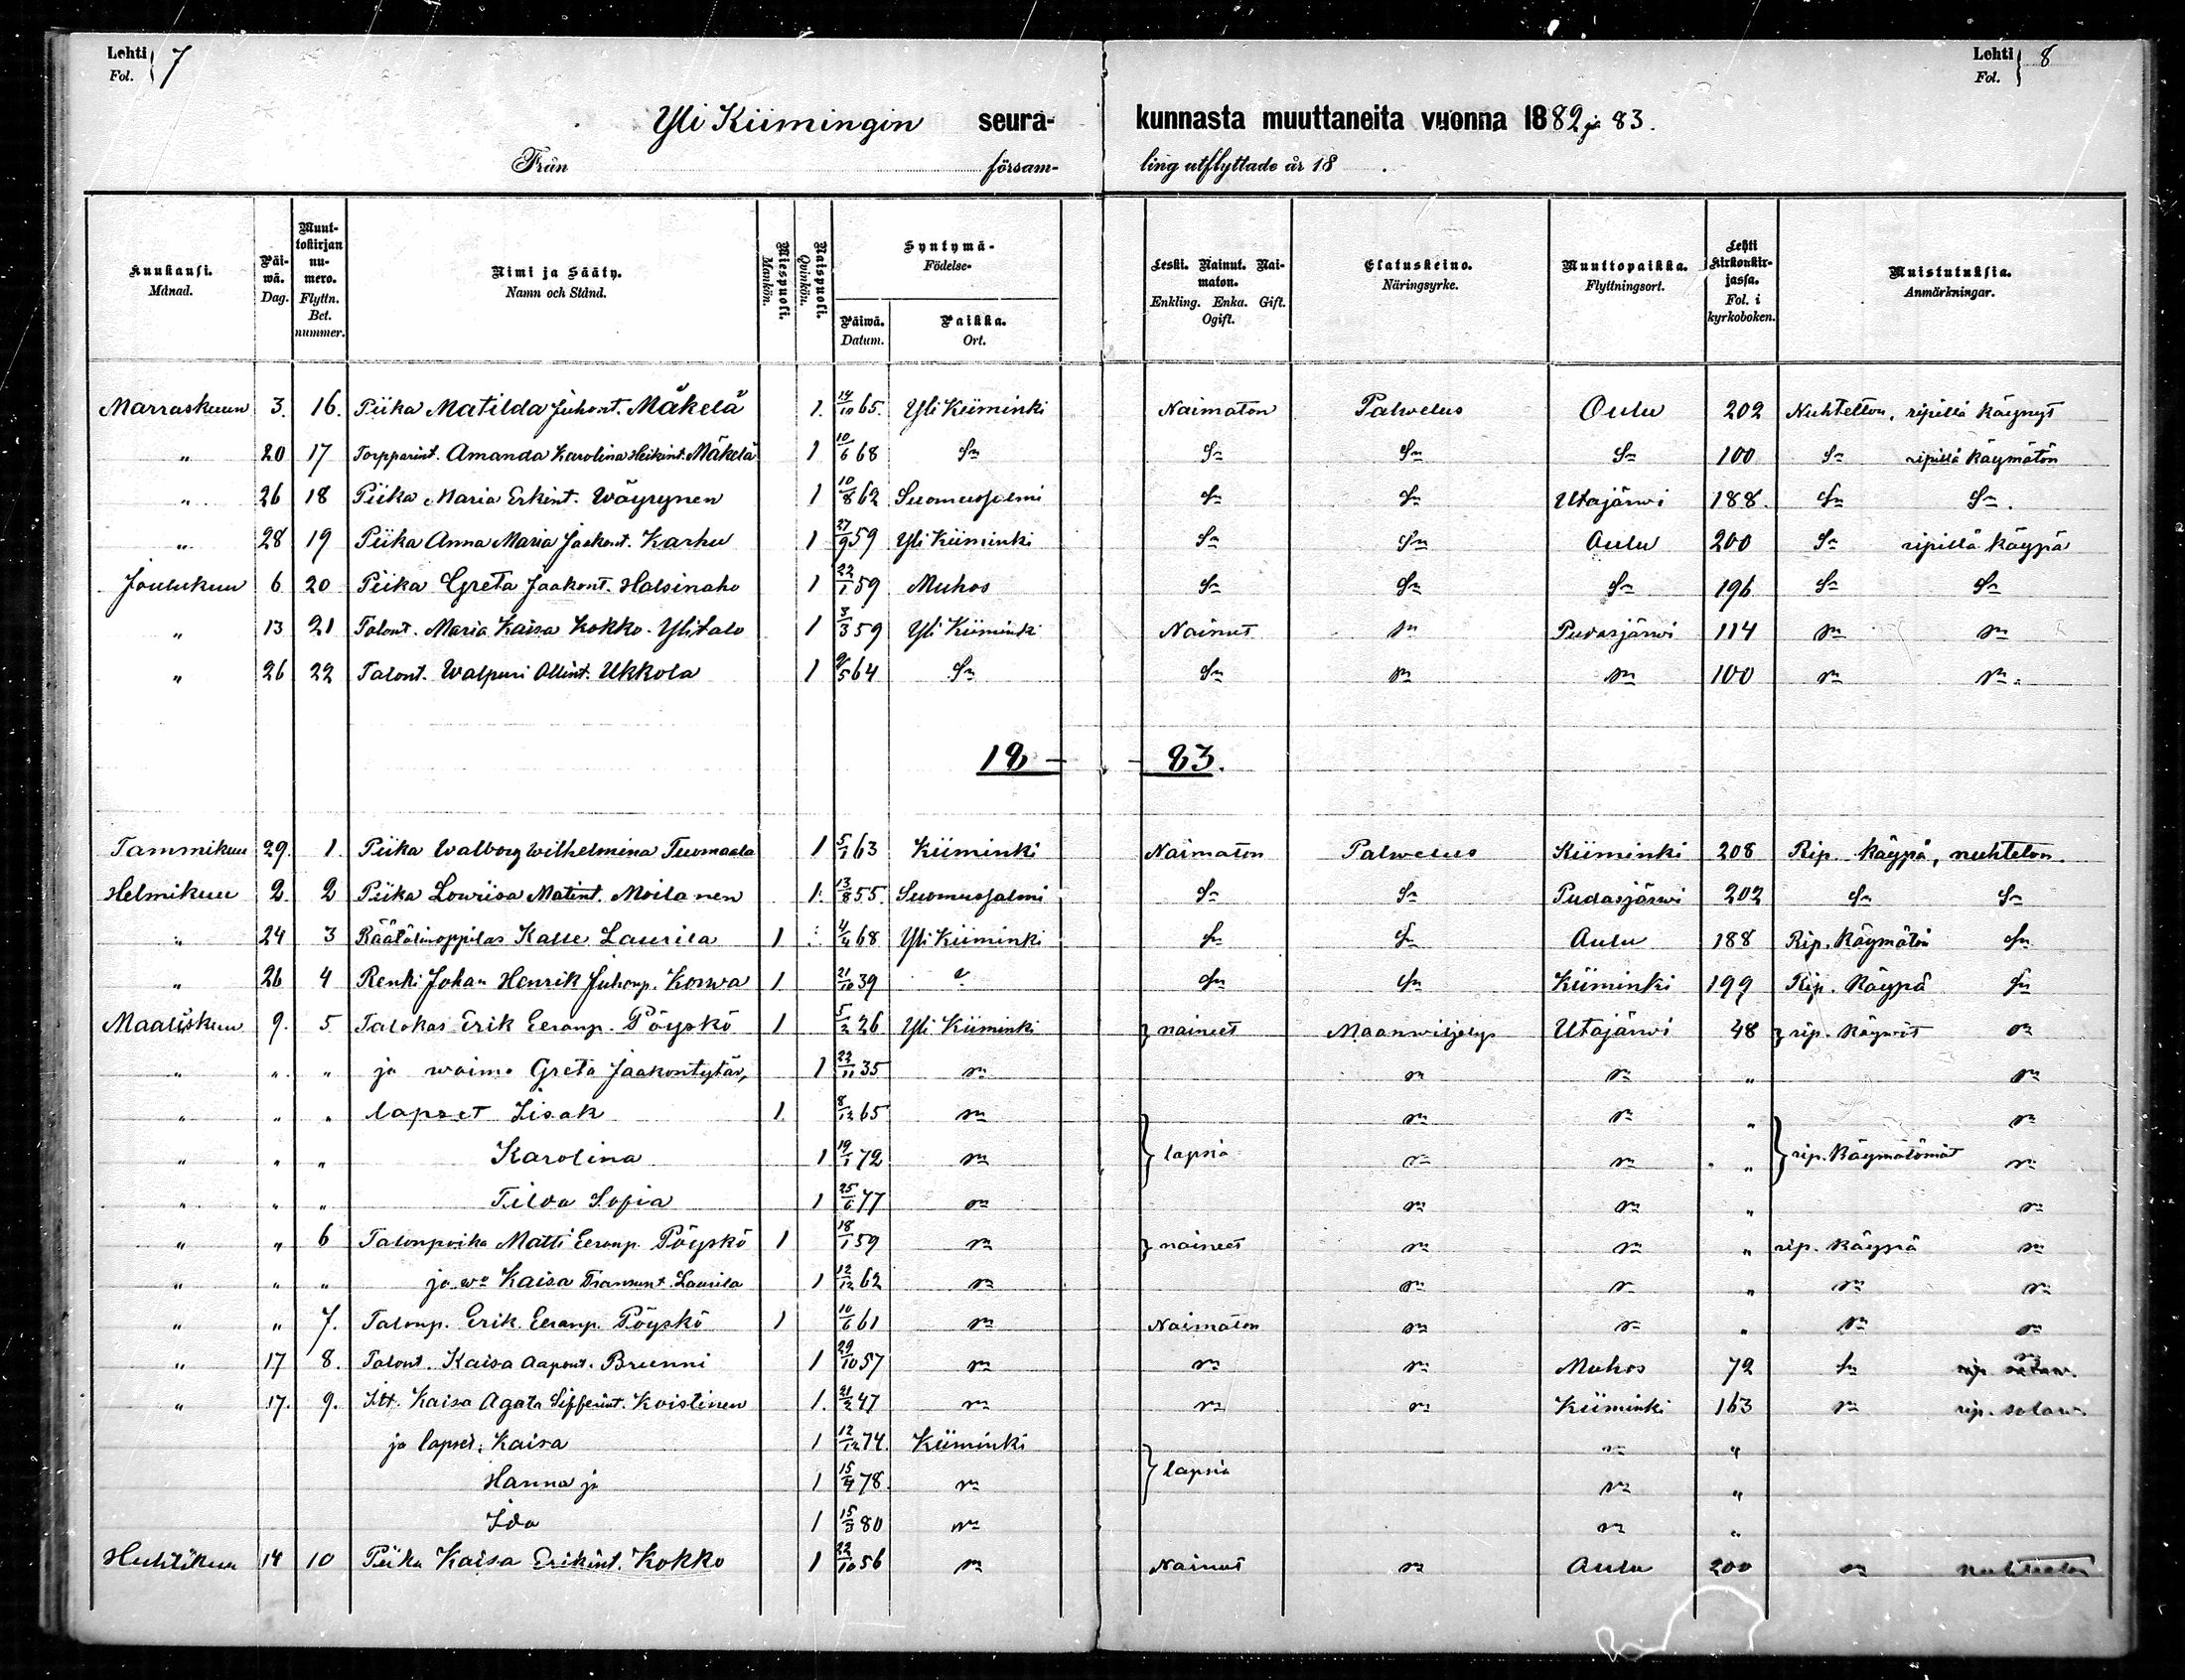 Lehti Fol. } 7
Lehti Fol. } 8
Yli Kiimingin seura- kunnasta muuttaneita vuonna 1882 ja 83.
Från församling utflyttade år 18 .
Kuukausi. Månad. | Päiwä. Dag. | Muuttokirjan numero. Flyttn. Bet. nummer. | Nimi ja Sääty. Namn och Stånd. | Miespuoli. Mankön. | Naispuoli. Qvinkön. | Syntymä- Födelse- Päiwä. Datum. | Paikka. Ort. | Leski. Nainut. Naimaton. Enkling. Enka. Gift. Ogift. | Elatuskeino. Näringsyrke. | Muuttopaikka. Flyttningsort. | Lehti kirkonkirjassa. Fol. i kyrkoboken. | Muistutuksia. Anmärkningar.
Marraskuun 3. 16. Piika Matilda Juhont. Mäkelä 1. 14/10 65. Yli Kiiminki Naimaton Palwelus Oulu 202 Nuhteton, ripillä käynyt
" 20 17 Torpparint. Amanda Karolina Heikint. Mäkelä 1 10/6 68 Sn Sn Sn Sn 100 Sn ripillä käymätön
" 26 18 Piika Maria Erkint. Wäyrynen 1 10/8 62 Suomussalmi Sn Sn Utajärwi 188. Sn Sn.
" 28 19 Piika Anna Maria Jaakont. Karhu 1 27/9 59 Yli Kiiminki Sn Sn Aulu 200 Sn ripillä käypä
Joulukuu 6 20 Piika Greta Jaakont. Halsinaho 1 22/1 59 Muhos Sn Sn Sn 196 Sn Sn
" 13 21 Talont. Maria Kaisa Kokko-Ylitalo 1 3/3 59 Yli Kiiminki Nainut Sn Pudasjärwi 114 Sn Sn
" 26 22 Talont. Walpuri Ollint. Ukkola 1 9/5 64 Sn Sn Sn Sn 100 Sn Sn.
18 - - 83.
Tammikuu 29. 1. Piika Walborg Wilhelmina Tuomaala 1 5/1 63 Kiiminki Naimaton Palwelus Kiiminki 208 Rip. käypä, nuhteton.
Helmikuu 2. 2 Piika Lowiisa Matint. Moilanen 1. 13/8 55. Suomussalmi Sn Sn Pudasjärwi 202 Sn Sn
" 24 3 Räätälinoppilas Kalle Laurila 1 4/4 68 Yli Kiiminki Sn Sn Aulu 188 Rip. Käymätön Sn
" 26 4 Renki Johan Henrik Juhonp. Korwa 1 21/10 39 Sn Sn Kiiminki 199 Rip. Käypä Sn
Maaliskuu 9. 5 Talokas Erik Eeronp. Pöyskö 1 5/2 26 Yli Kiiminki } naineet Maanwiljelys Utajärwi 48 } rip. käywät Sn
" " " ja waimo Greta Jaakontytär, 1 22/11 35 Sn Sn Sn " Sn
" " " lapset Iisak 1. 8/12 65 Sn Sn Sn " Sn
" " " Karolina 1 19/1 72 Sn } lapsia Sn Sn " } rip. Käymätömät Sn
" " " Tilda Sofia 1 25/6 77 Sn Sn Sn " Sn
" " 6 Talonpoika Matti Eeronp. Pöyskö 1 18/1 59 Sn } naineet Sn Sn " rip. käypä Sn
" " " ja wo Kaisa Laurila 1 12/12 62 Sn Sn Sn " Sn Sn
" " 7. Talonp. Erik Eeronp. Pöyskö 1 10/6 61 Sn Naimaton Sn Sn " Sn Sn
" 17 8. Talont. Kaisa Aapont. Brunni 1 29/10 57 Sn Sn Sn Muhos 72 Sn Sn
" 17. 9. Itt. Kaisa Agata Koistinen 1. 21/2 47 Sn Sn Sn Kiiminki 163 Sn rip.
ja lapset: Kaisa 1 12/12 74. Kiiminki Sn "
Hanna ja 1 15/4 78. Sn } lapsia Sn "
Ida 1 15/3 80 Sn Sn "
Huhtikuu 14 10 Piika Kaisa Erikint. Kokko 1 22/10 56 Sn Nainut Sn Aulu 200 Sn nuhteeton